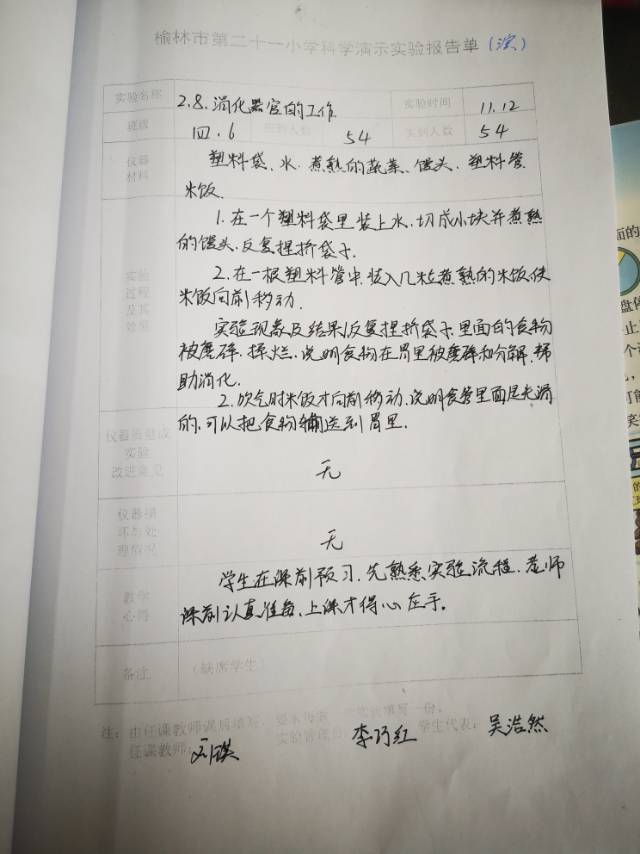 榆林市第二十一小学科学演示实验报告单(演)
实验名称 2.8.消化器官的工作 实验时间 11.12
班级 四.6 应到人数 54 实到人数 54
仪器材料 塑料袋、水、煮熟的蔬菜、馒头、塑料管
米饭
1.在一个塑料袋里装上水.切成小块并煮熟
的馒头.反复捏挤袋子.
实验过程及其效果
2.在一根塑料管中.装入几粒煮熟的米饭使
米饭向前移动.
实验现象及结果1.反复捏挤袋子.里面的食物
被磨碎、揉烂.说明食物在胃里被磨碎和分解.帮
助消化.
2.吹气时米饭才向前移动.说明食管里面是光滑
的.可以把食物输送到胃里.
仪器质量或实验改进意见 无
仪器损坏与处理情况 无
教学心得 学生在课前预习.先熟悉实验流程.老师
课前认真准备.上课才得心应手。
备注 (缺席学生)
注:由任课教师课后填写,
填写一份。
任课教师: 刘 实验管理员: 李巧红 学生代表: 吴浩然